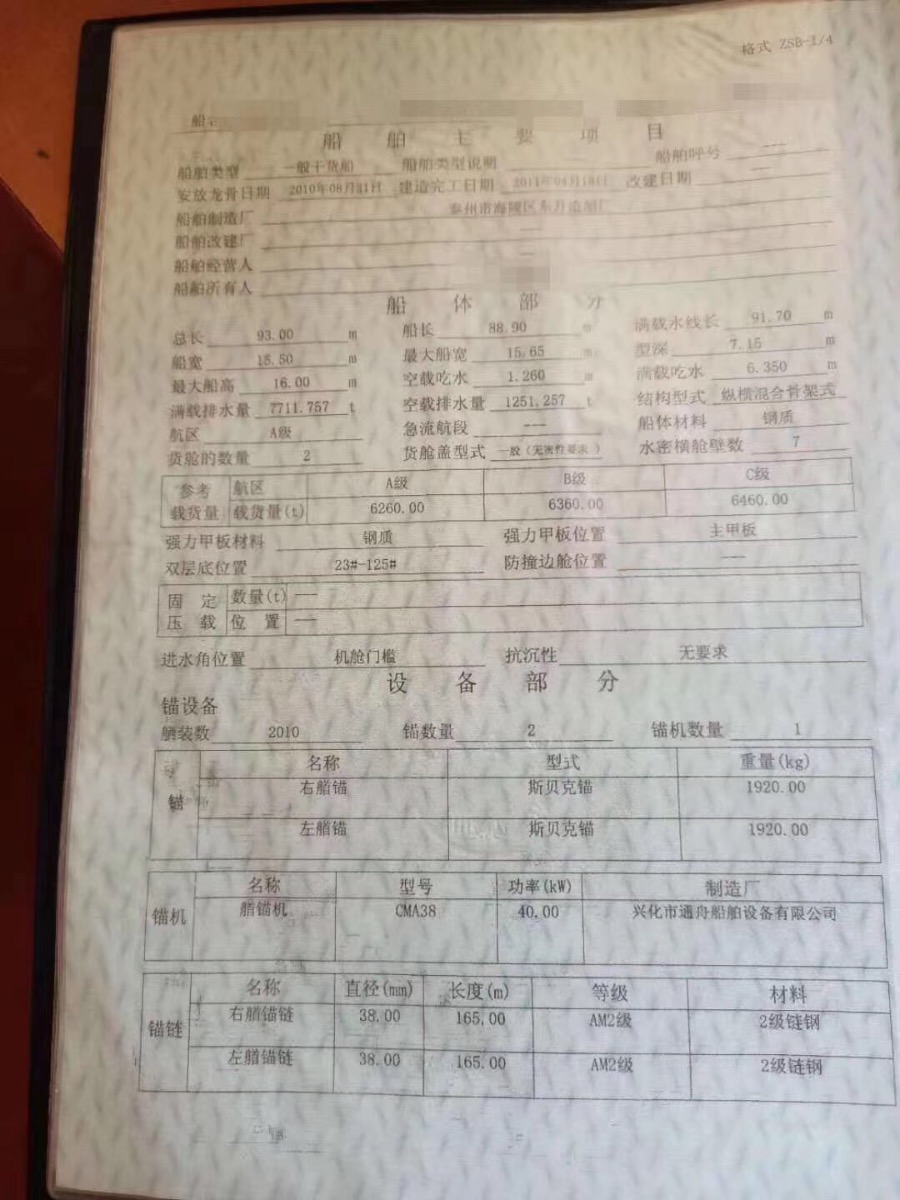 格式 ZSB-1/4
船名
船舶主要项目
船舶类型 一般干货船 船舶类型说明 船舶呼号 ---
安放龙骨日期 2010年08月31日 建造完工日期 2011年04月18日 改建日期 ---
船舶制造厂 泰州市海陵区东升造船厂
船舶改建厂 ---
船舶经营人
船舶所有人
船体部分
总长 93.00 m 船长 88.90 m 满载水线长 91.70 m
船宽 15.50 m 最大船宽 15.65 m 型深 7.15 m
最大船高 16.00 m 空载吃水 1.260 m 满载吃水 6.350 m
满载排水量 7711.757 t 空载排水量 1251.257 t 结构型式 纵横混合骨架式
航区 A级 急流航段 --- 船体材料 钢质
货舱的数量 2 货舱盖型式 一般(无密性要求) 水密横舱壁数 7
参考 航区 A级 B级 C级
载货量 载货量(t) 6260.00 6360.00 6460.00
强力甲板材料 钢质 强力甲板位置 主甲板
双层底位置 23#-125# 防撞边舱位置 ---
固定 数量(t) ---
压载 位置 ---
进水角位置 机舱门槛 抗沉性 无要求
设备部分
锚设备
舾装数 2010 锚数量 2 锚机数量 1
锚 名称 型式 重量(kg)
右艏锚 斯贝克锚 1920.00
左艏锚 斯贝克锚 1920.00
锚机 名称 型号 功率(kW) 制造厂
艏锚机 CMA38 40.00 兴化市通舟船舶设备有限公司
锚链 名称 直径(mm) 长度(m) 等级 材料
右艏锚链 38.00 165.00 AM2级 2级链钢
左艏锚链 38.00 165.00 AM2级 2级链钢